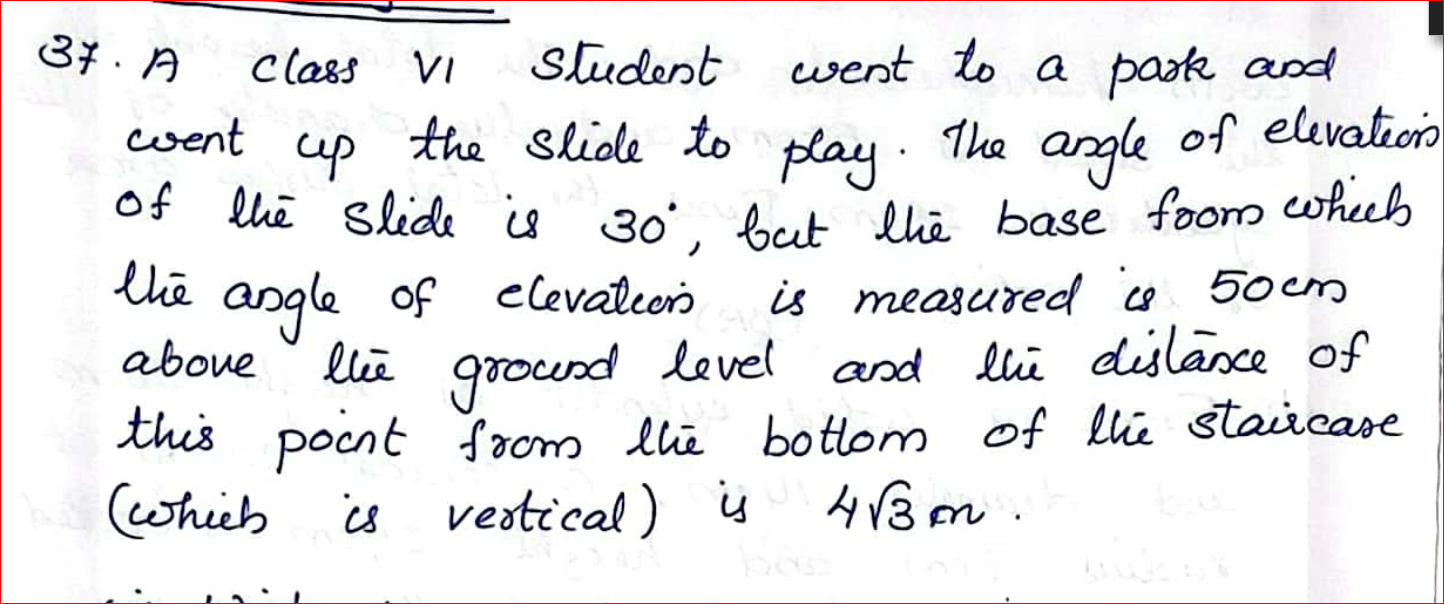 37. A class VI student went to a park and
went up the slide to play. The angle of elevation
of the slide is 30°, but the base from which
the angle of elevation is measured is 50cm
above the ground level and the distance of
this point from the bottom of the staircase
(which is vertical) is 4√3 m.